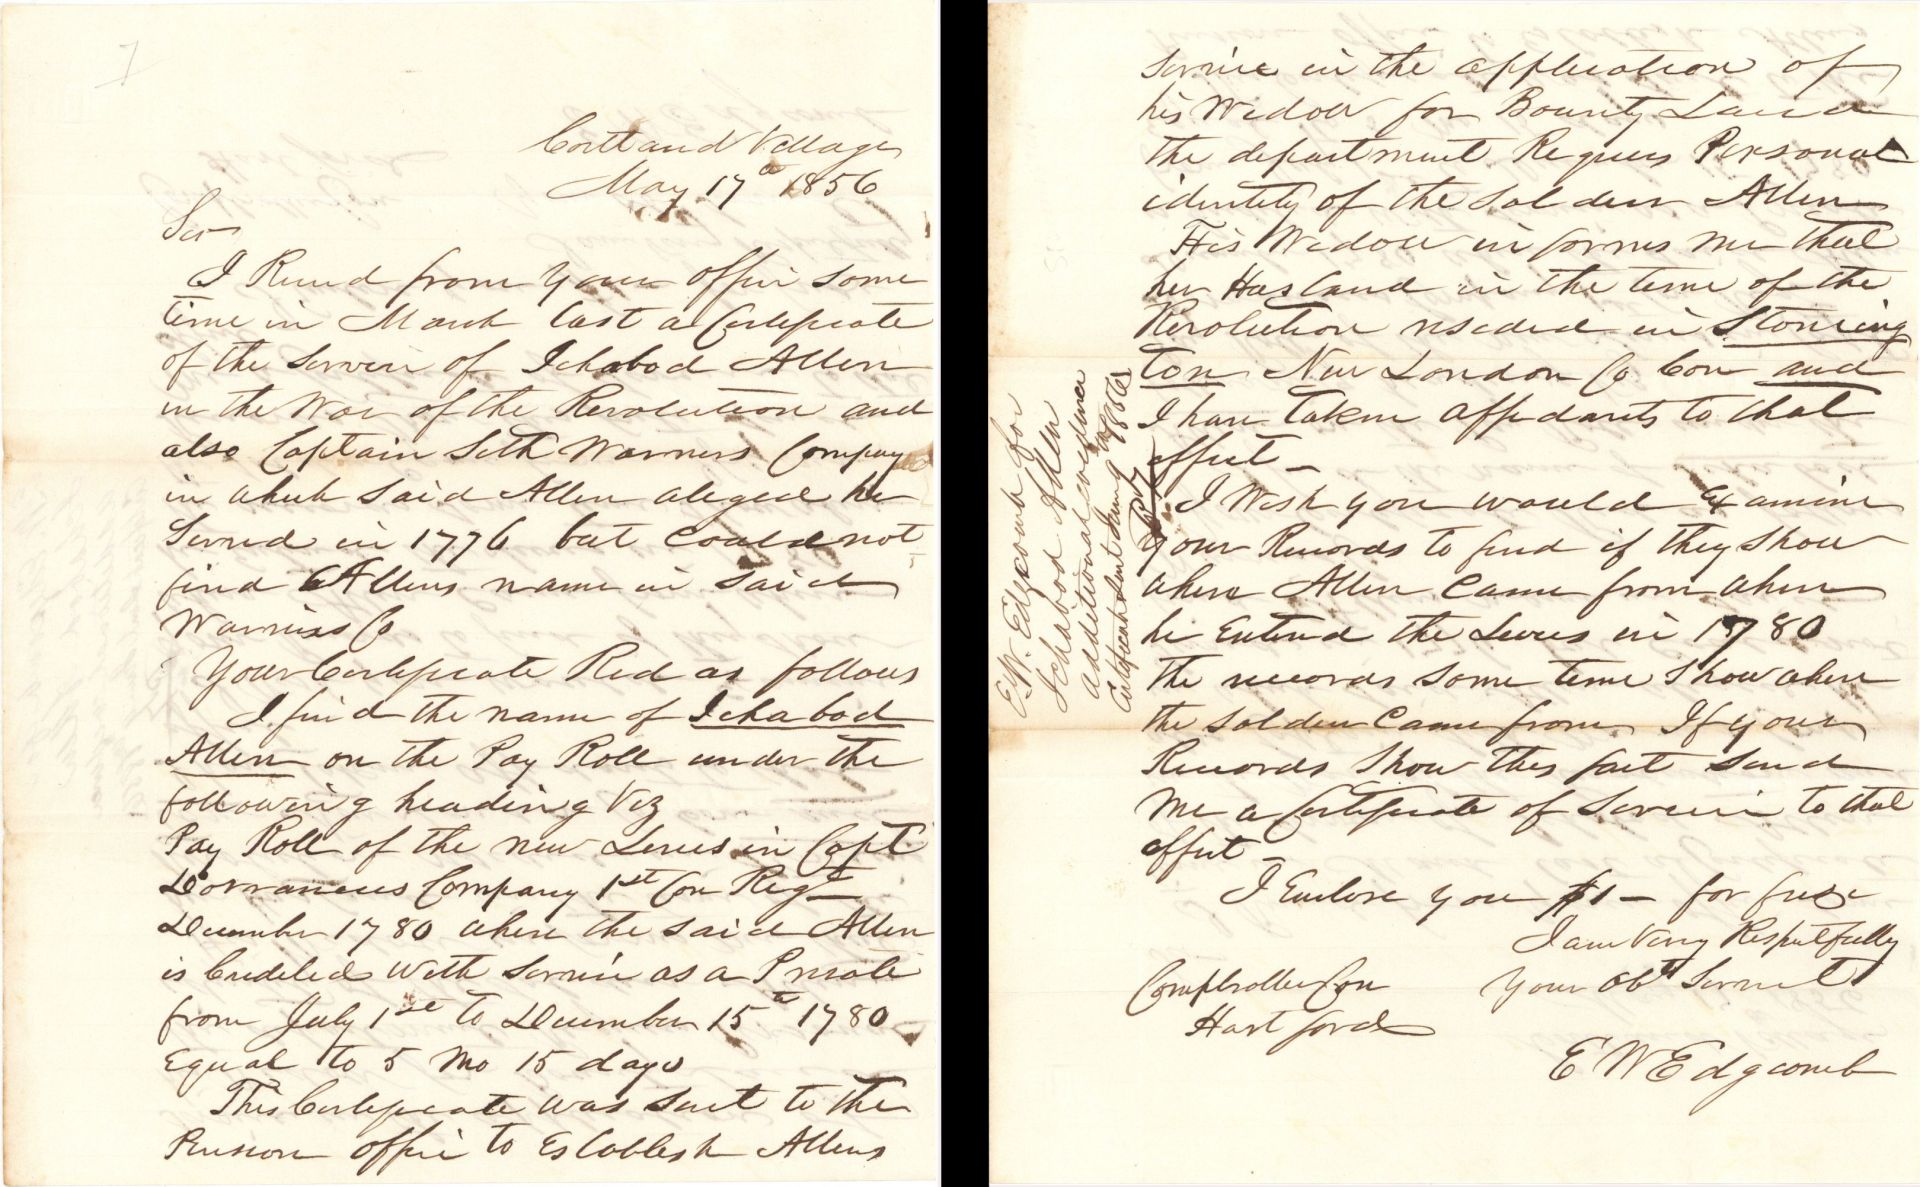 7
Cortland Village
May 17th 1856
Sir
I Recud from your offic some
time in March last a Certificate
of the Servici of Ichabod Allen
in the War of the Revolution and
also Captain Seth Warners Company
in which said Allen aleged he
Served in 1776 but could not
find Allens name in said
Warners Co
Your Certificate Red as follows
I find the name of Ichabod
Allen on the Pay Roll under the
following heading Viz
Pay Roll of the new Levies in Capt
Dorrances Company 1st Con Regt
December 1780 where the said Allen
is Credited With Service as a Private
from July 1st to December 15th 1780
Equal to 5 Mo 15 days
This Certificate was sent to the
Pension offic to Establish Allens
Service in the application of
his Widow for Bounty Land
the department Requirs Personal
identity of the Soldier Allen
His Widow informs me that
her Husband in the time of the
Revolution resided in Stoning
ton New London Co Con and
I have taken affidavits to that
effect
I Wish you would Examine
your Records to find if they show
where Allen Came from when
he Entered the Levies in 1780
the records some time Show where
the soldier Came from If your
Records Show this fact send
me a Certificate of Service to that
effect
I Enclose you $1 for fees
I am Very Respectfully
Your Obt Servnt
Comptroller Con
Hartford
E W Edgcomb
E.W. Edgcomb for
Ichabod Allen
additional evidence
Certificate sent 1856